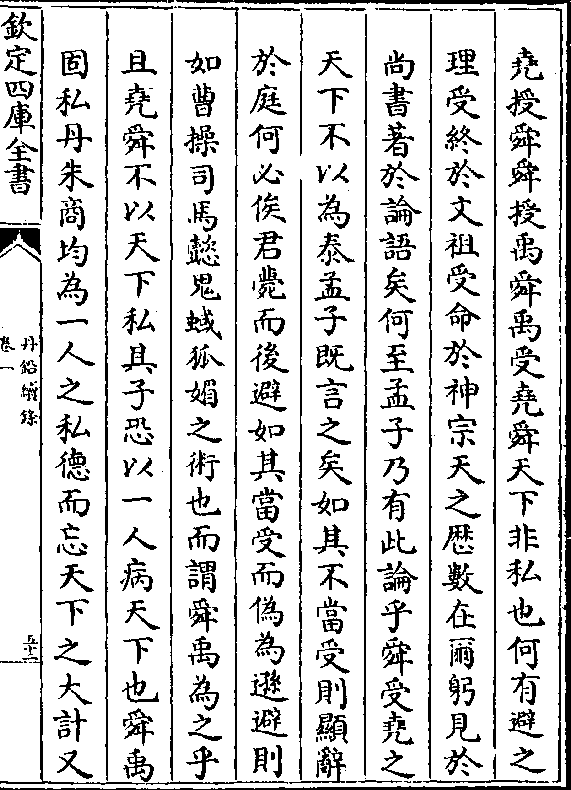 堯授舜舜授禹舜禹受堯舜天下非私也何有避之
理受終於文祖受命於神宗天之厯數在爾躬見於
尚書著於論語矣何至孟子乃有此論乎舜受堯之
天下不以為泰孟子既言之矣如其不當受則顯辭
於庭何必俟君薨而後避如其當受而偽為遜避則
如曹操司馬懿鬼蜮狐媚之術也而謂舜禹為之乎
且堯舜不以天下私其子恐以一人病天下也舜禹
固私丹朱商均為一人之私德而忘天下之大計又
欽定四庫全書
丹鉛續錄
卷一